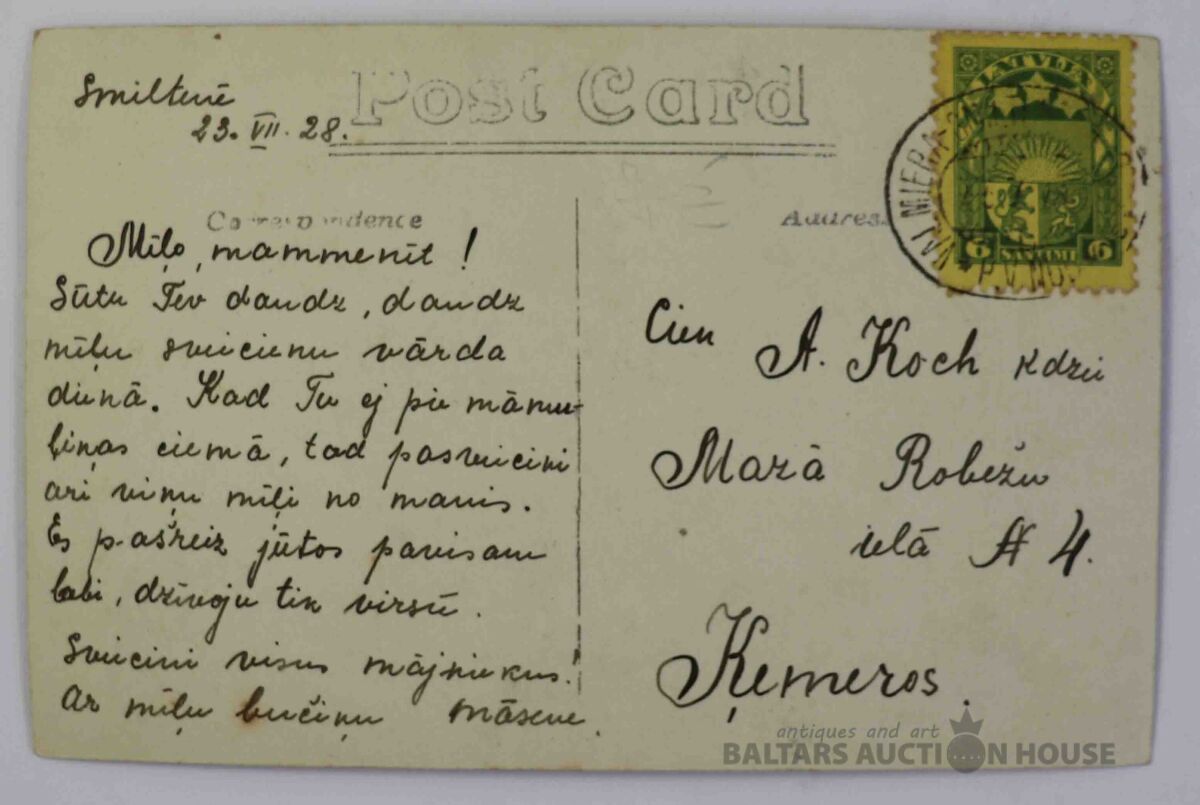 Smiltenē
23. VII. 28.
Post Card
Correspondence
Address
Mīļo, mammenīt!
Sūtu Tev daudz, daudz
mīļu sveicienu vārda
dienā. Kad Tu ej pie māmu-
liņas ciemā, tad pasveicini
arī viņu mīļi no manis.
Es pašreiz jūtos pavisam
labi, dzīvoju tik virsū.
Sveicini visus mājniekus!
Ar mīļu bučiņu Māsene
LATVIJA
6 SANTIMI 6
Cien A. Koch kdzei
Mazā Robežu
ielā № 4.
Ķemeros.
antiques and art
BALTARS AUCTION HOUSE